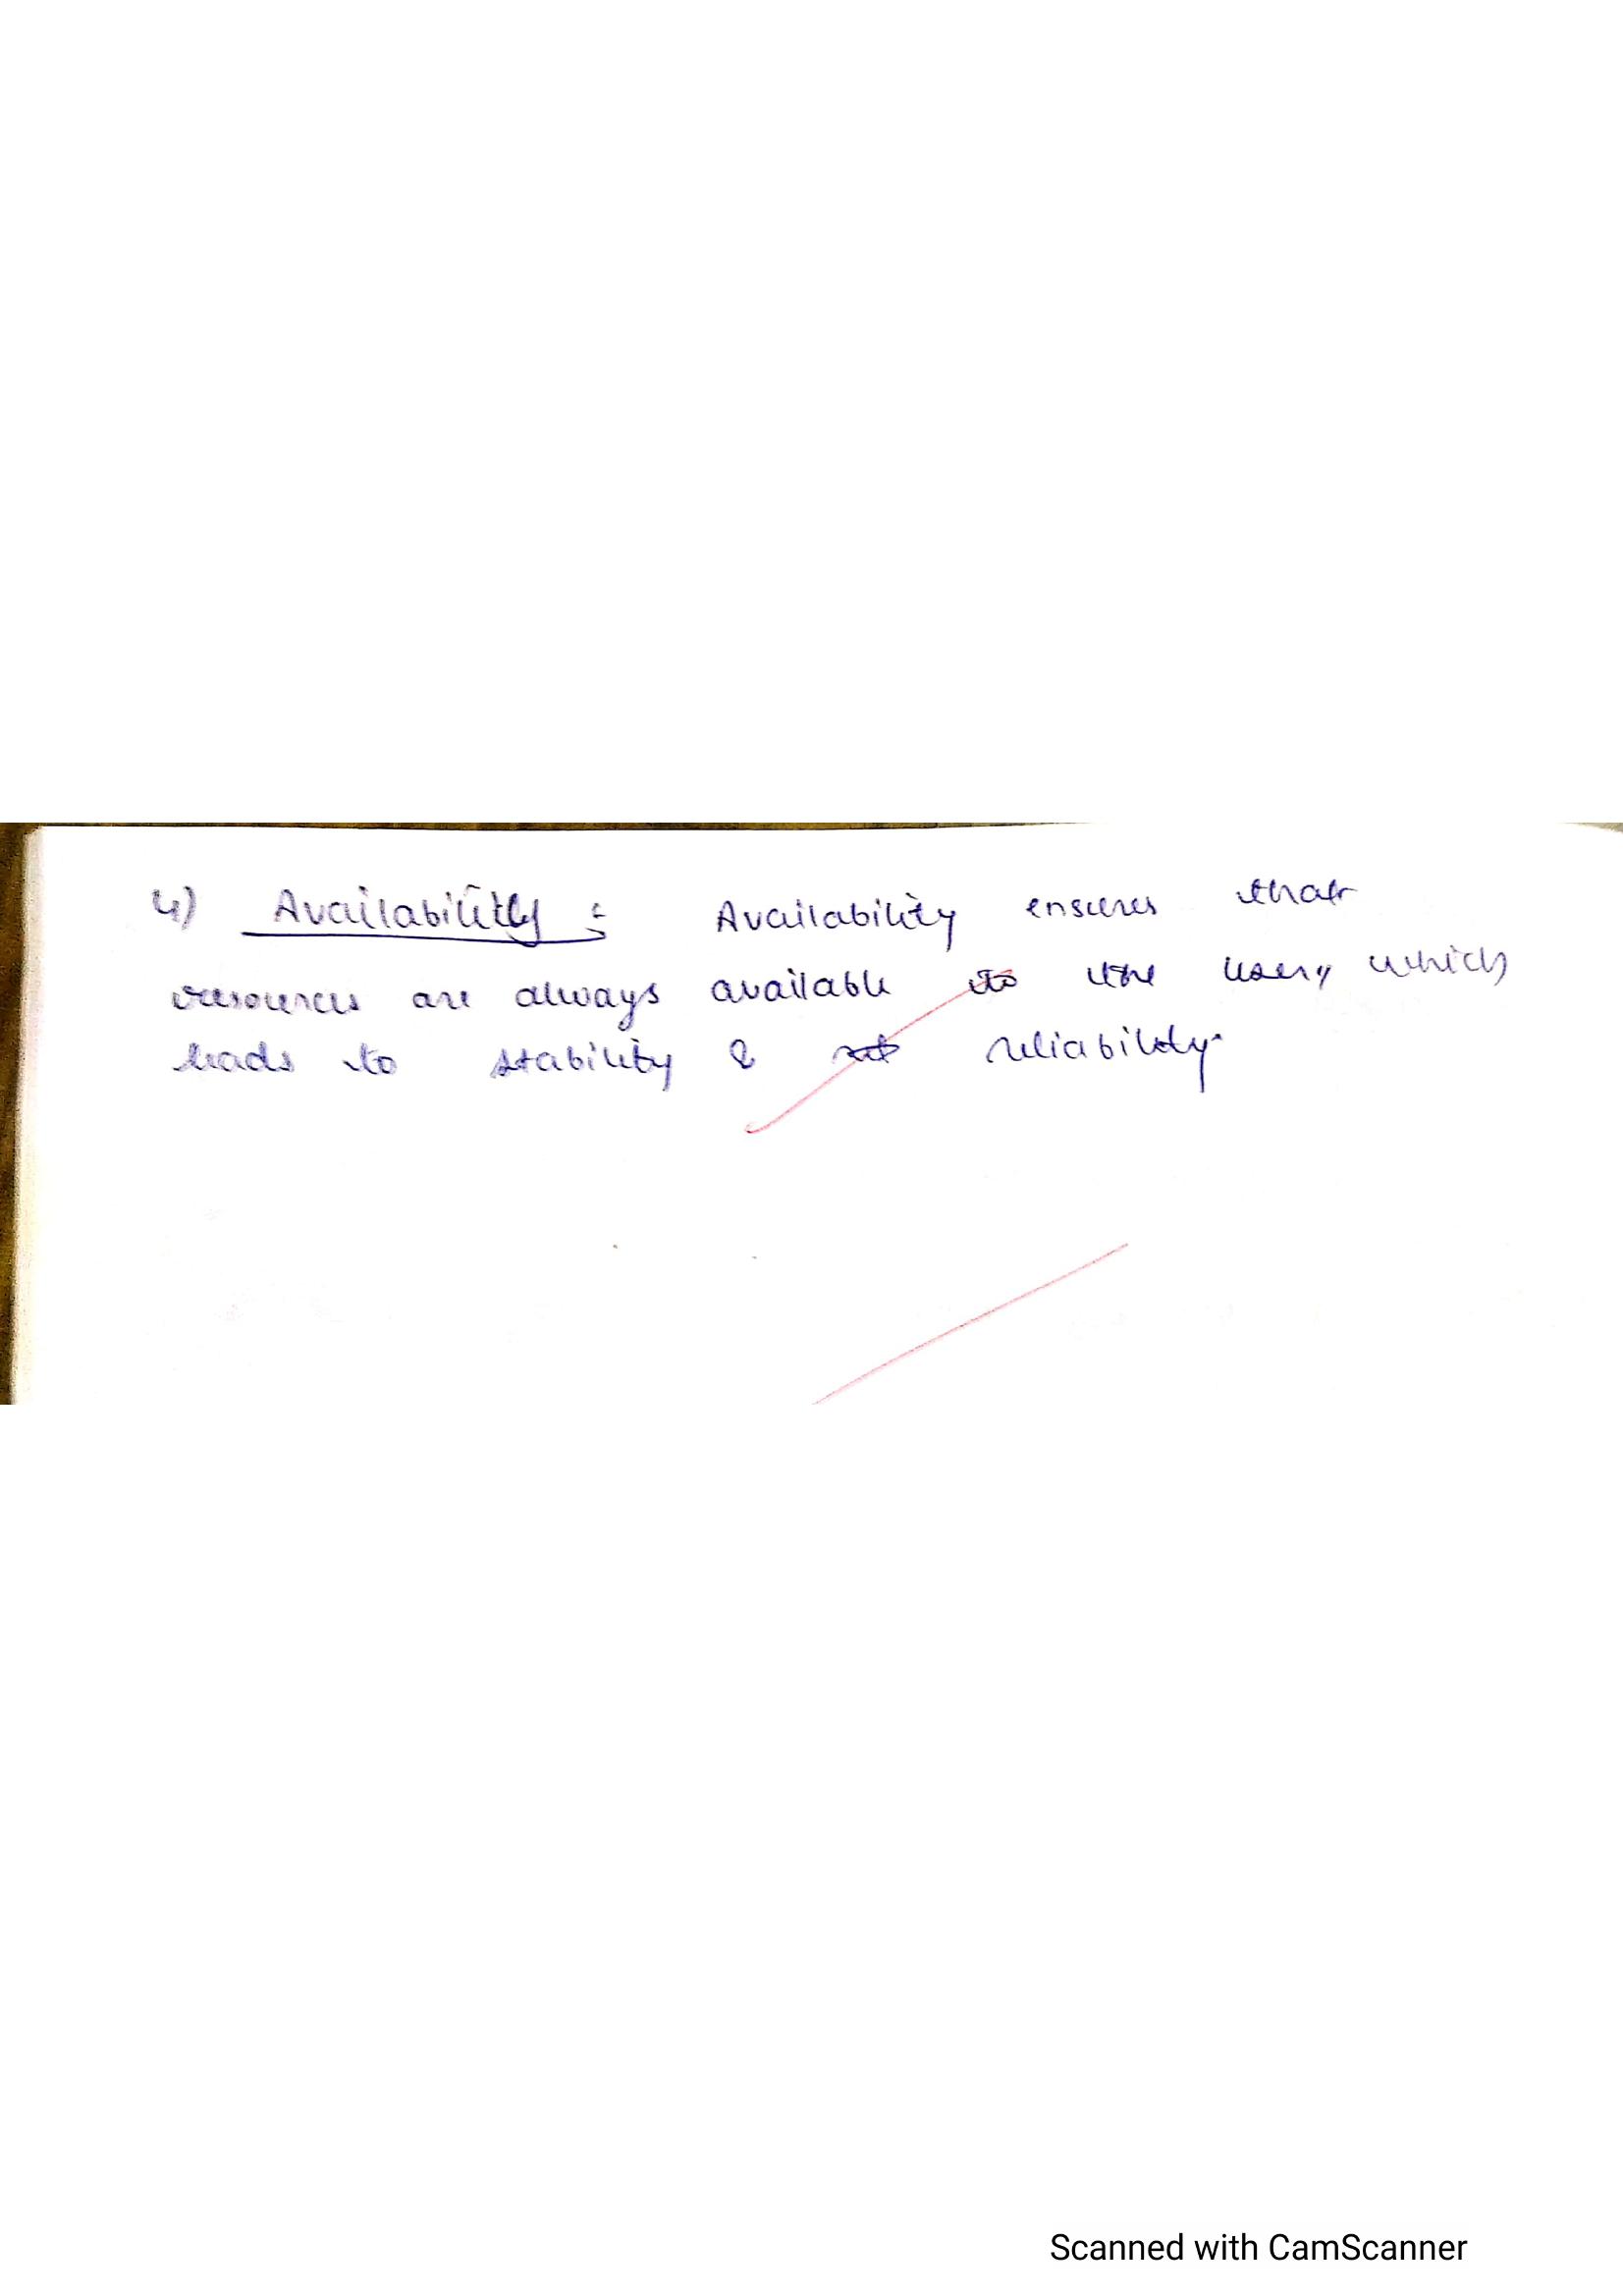 4) Availability : Availability ensures that
resources are always available to the users which
leads to stability & reliability.
Scanned with CamScanner